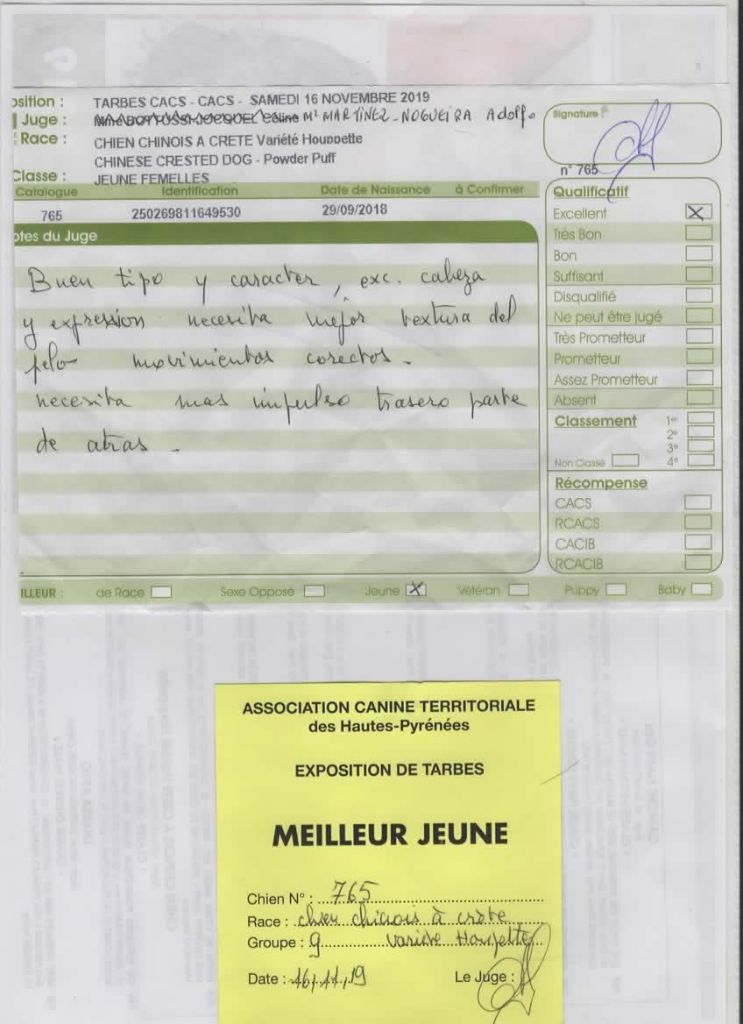 osition : TARBES CACS - CACS - SAMEDI 16 NOVEMBRE 2019
Juge : Céline Mr MARTINEZ-NOGUEIRA Adolfo
Race : CHIEN CHINOIS A CRETE Variété Houppette
CHINESE CRESTED DOG - Powder Puff
Classe : JEUNE FEMELLES
Signature :
n° 765
Catalogue Identification Date de Naissance à Confirmer
765 250269811649530 29/09/2018
otes du Juge
Buen tipo y caracter, exc. cabeza
y expression necesita mejor textura del
pelo movimientos corectos.
necesita mas impulso trasero parte
de atras.
Qualificatif
Excellent X
Très Bon
Bon
Suffisant
Disqualifié
Ne peut être jugé
Très Prometteur
Prometteur
Assez Prometteur
Absent
Classement 1er
2e
3e
Non Classé 4e
Récompense
CACS
RCACS
CACIB
RCACIB
ILLEUR : de Race Sexe Opposé Jeune X Vétéran Puppy Baby
ASSOCIATION CANINE TERRITORIALE
des Hautes-Pyrénées
EXPOSITION DE TARBES
MEILLEUR JEUNE
Chien N° : 765
Race : chien chinois à crête
Groupe : 9 variété Houppette
Date : 16/11/19 Le Juge :